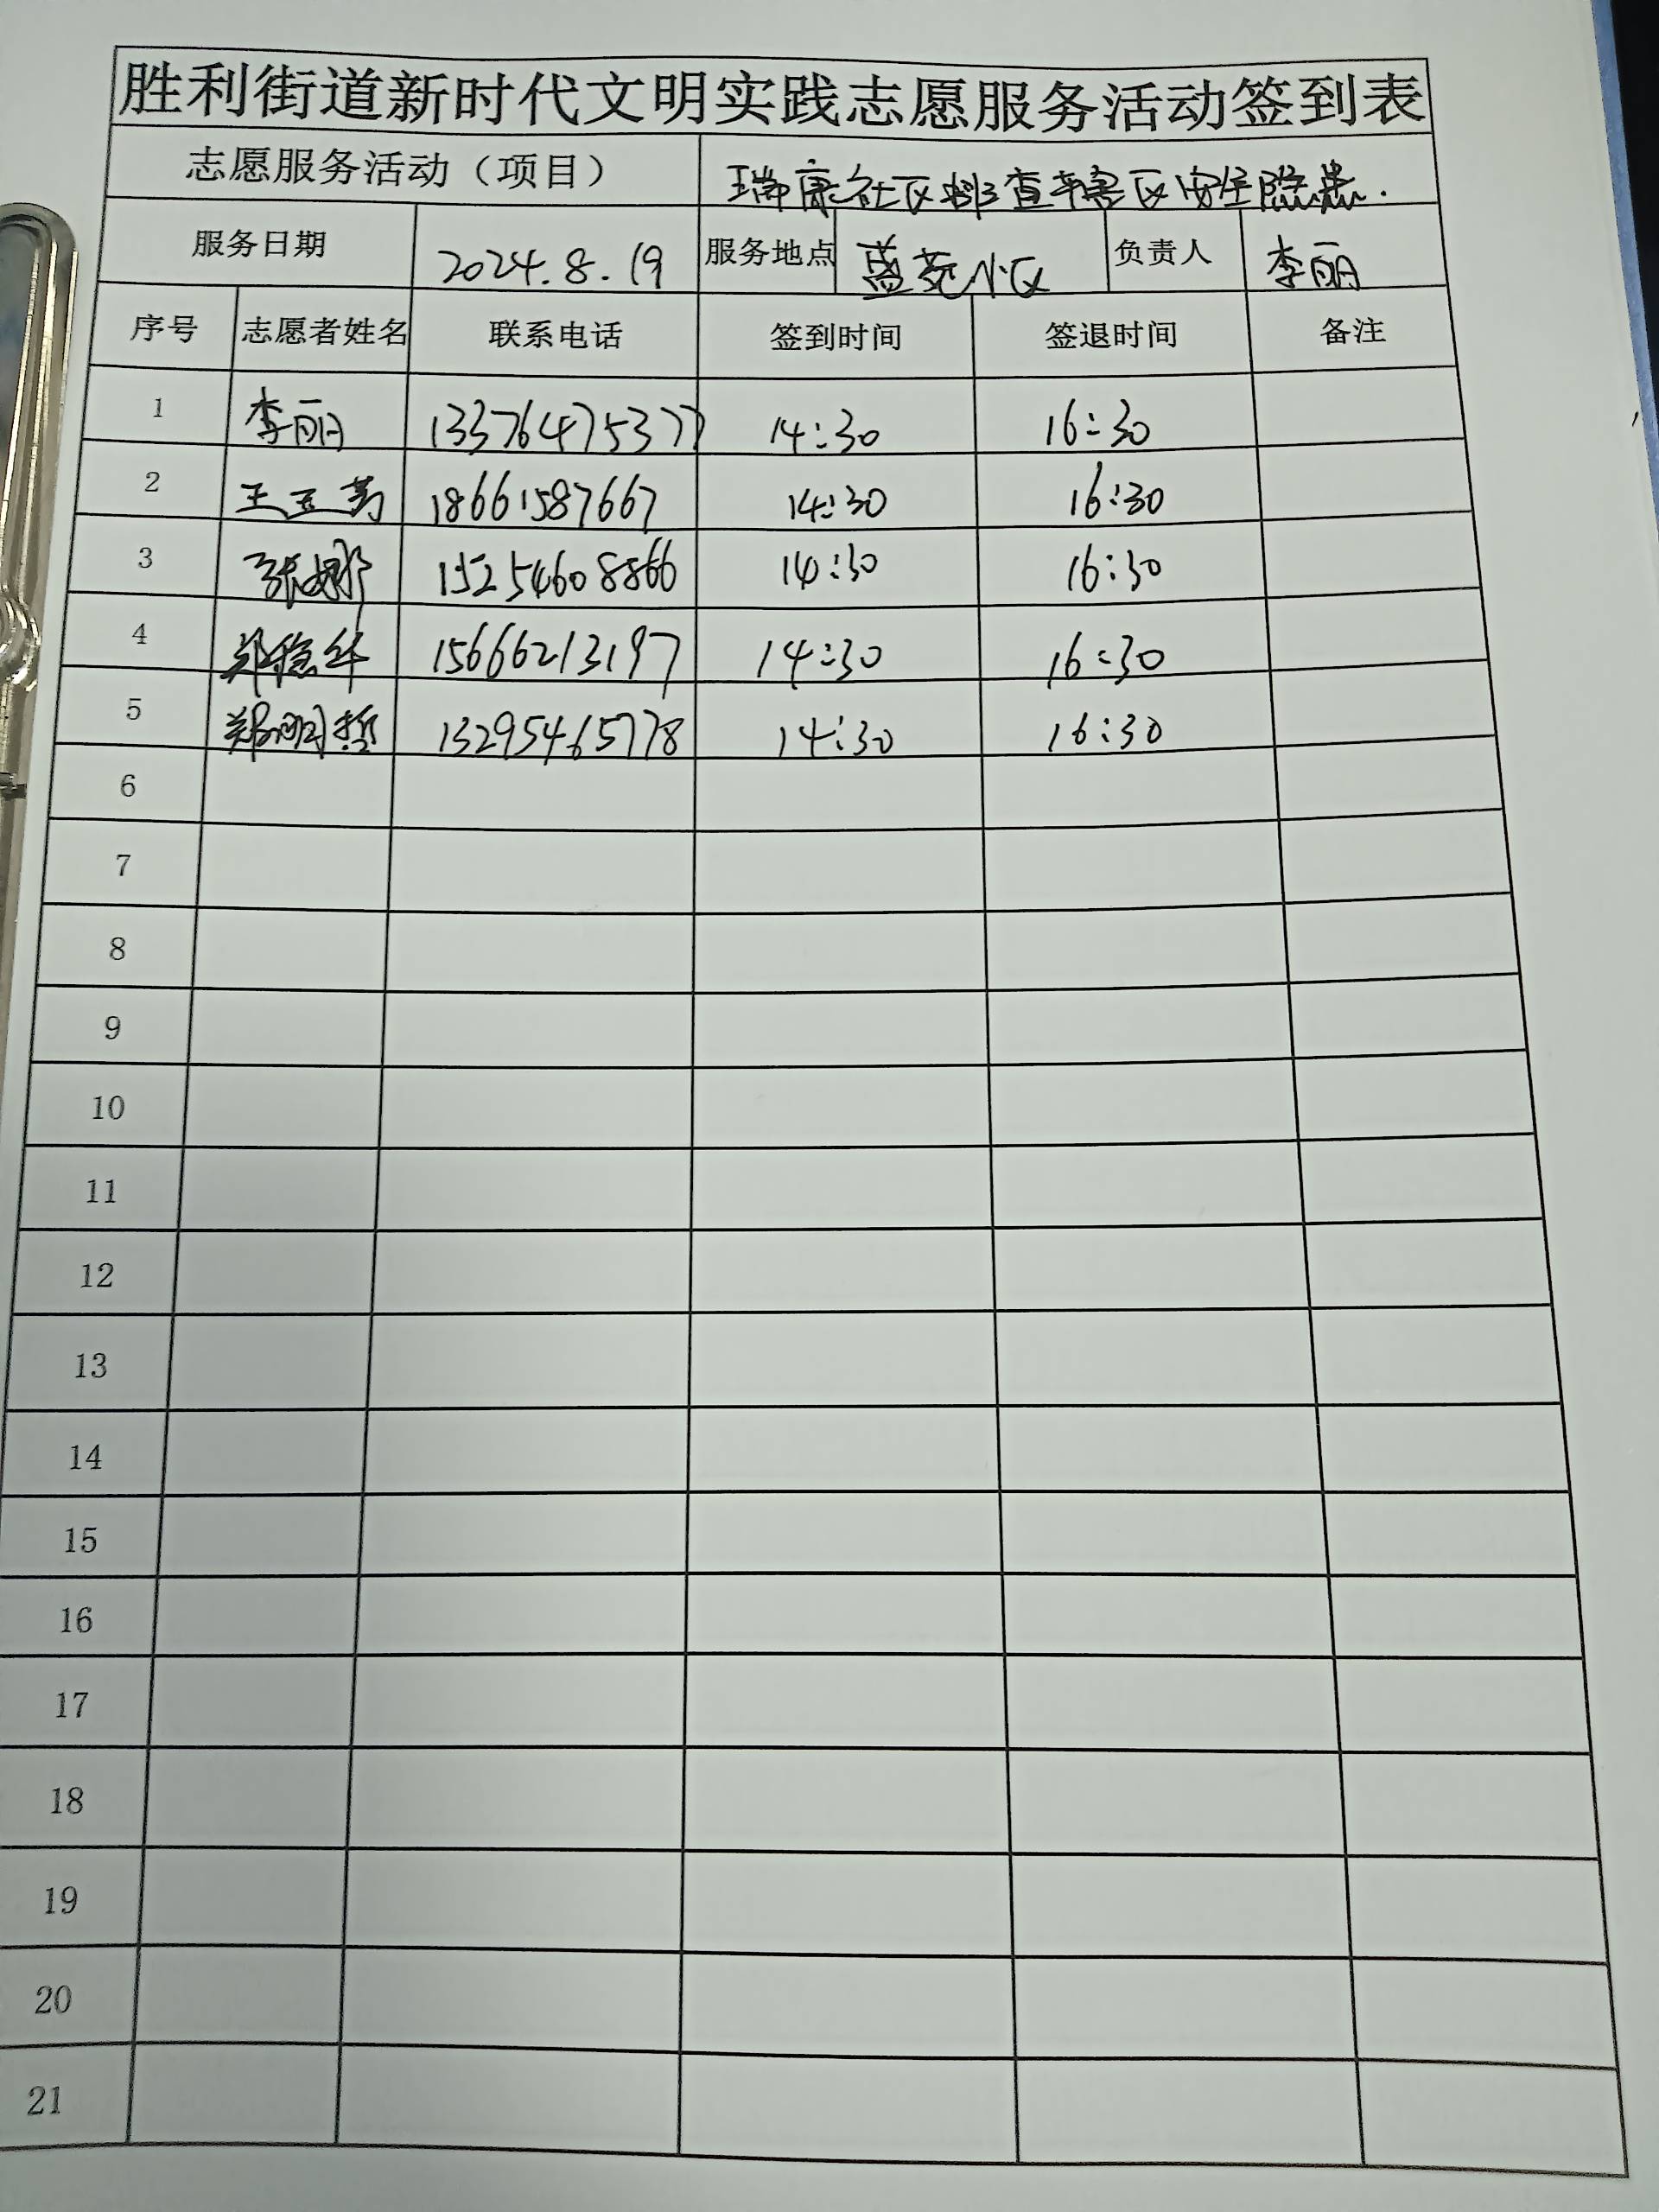 胜利街道新时代文明实践志愿服务活动签到表
志愿服务活动（项目） 瑞康社区排查辖区安全隐患.
服务日期 2024.8.19 服务地点 蓝苑小区 负责人 李丽
序号 志愿者姓名 联系电话 签到时间 签退时间 备注
1 李丽 13376475377 14:30 16:30
2 王玉芳 18661587667 14:30 16:30
3 张娜 15254608866 14:30 16:30
4 15666213197 14:30 16:30
5 郑明哲 13295465778 14:30 16:30
6
7
8
9
10
11
12
13
14
15
16
17
18
19
20
21